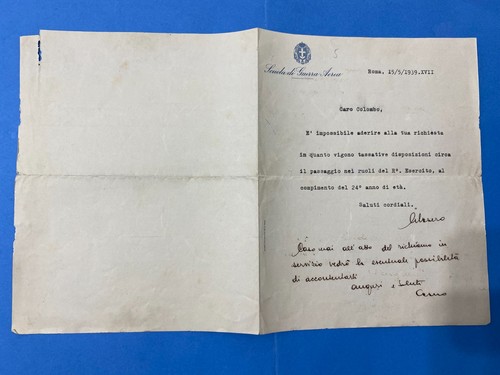 5
Scuola di Guerra Aerea
Roma, 15/5/1939.XVII
Caro Colombo,
E' impossibile aderire alla tua richiesta
in quanto vigono tassative disposizioni circa
il passaggio nei ruoli del R°. Esercito, al
compimento del 24° anno di età.
Saluti cordiali.
Caso mai all'atto del richiamo in
servizio vedrò la eventuale possibilità
di accontentarti
auguri e saluti